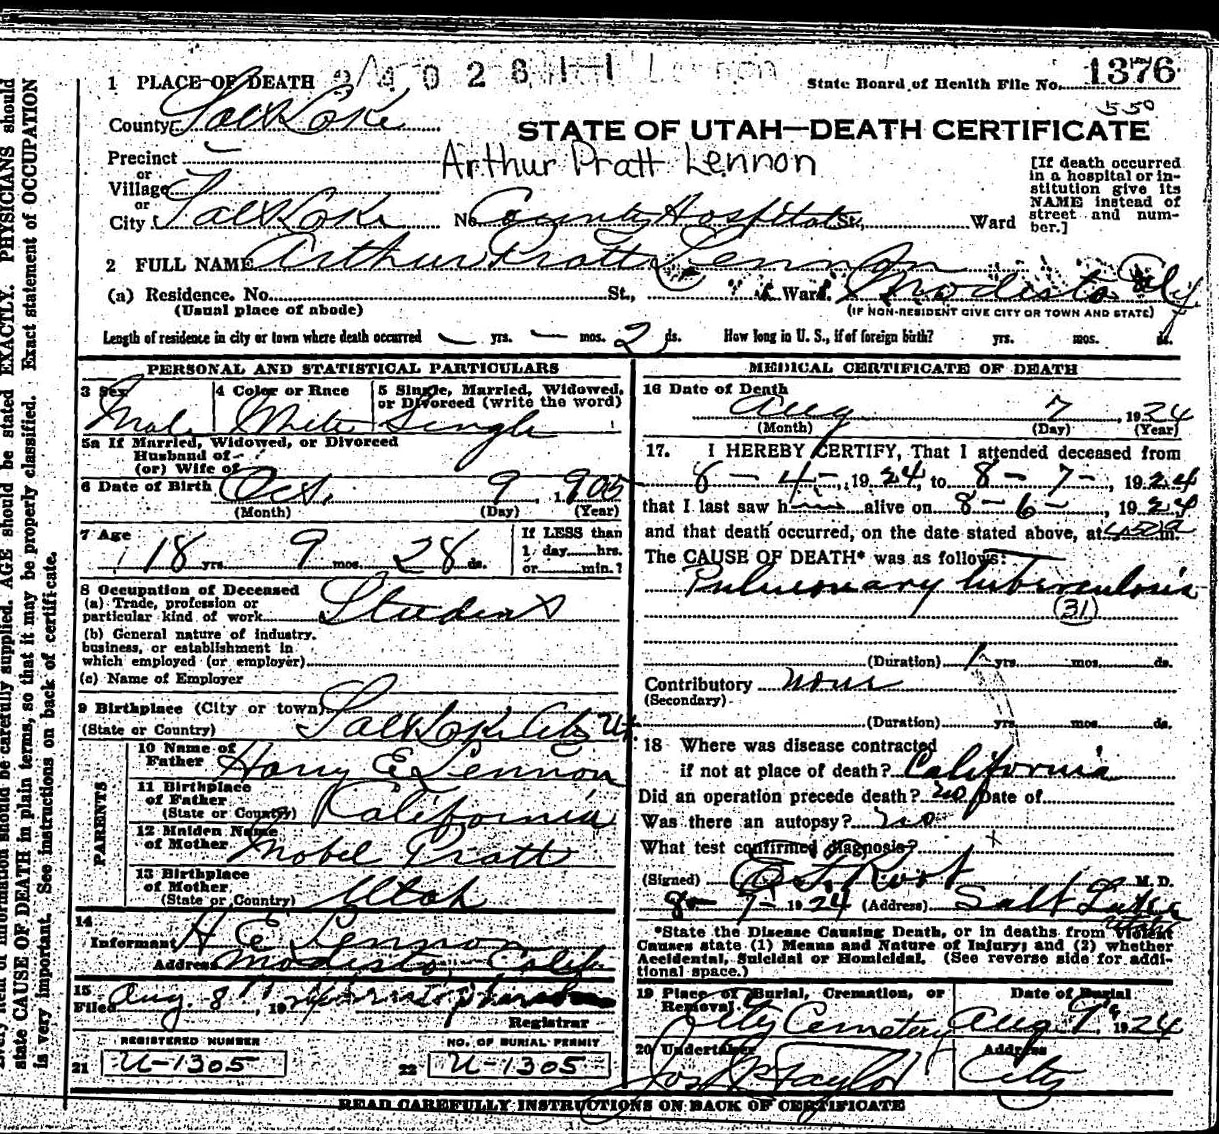 1 PLACE OF DEATH
State Board of Health File No. 1376
550
County Salt Lake
STATE OF UTAH—DEATH CERTIFICATE
Precinct
Arthur Pratt Lennon
or
Village
or
City Salt Lake No. County Hospital St., Ward
[If death occurred
in a hospital or in-
stitution give its
NAME instead of
street and num-
ber.]
2 FULL NAME Arthur Pratt Lennon
(a) Residence. No. St., Ward. Modesto Calif
(Usual place of abode) (IF NON-RESIDENT GIVE CITY OR TOWN AND STATE)
Length of residence in city or town where death occurred — yrs. — mos. 2 ds. How long in U. S., if of foreign birth? yrs. mos. ds.
PERSONAL AND STATISTICAL PARTICULARS
3 Sex Male
4 Color or Race White
5 Single, Married, Widowed,
or Divorced (write the word)
Single
5a If Married, Widowed, or Divorced
Husband of
(or) Wife of
6 Date of Birth Oct. 9 1905
(Month) (Day) (Year)
7 Age 18 yrs. 9 mos. 28 ds.
If LESS than
1 day hrs.
or min.?
8 Occupation of Deceased
(a) Trade, profession or
particular kind of work Student
(b) General nature of industry,
business, or establishment in
which employed (or employer)
(c) Name of Employer
9 Birthplace (City or town)
(State or Country) Salt Lake City Ut.
PARENTS
10 Name of
Father Harry E Lennon
11 Birthplace
of Father
(State or Country) California
12 Maiden Name
of Mother Mabel Pratt
13 Birthplace
of Mother
(State or Country) Utah
14
Informant H E Lennon
Address Modesto, Calif.
15
Filed Aug. 8 1924
Registrar
REGISTERED NUMBER
21 U-1305
NO. OF BURIAL PERMIT
22 U-1305
MEDICAL CERTIFICATE OF DEATH
16 Date of Death
Aug 7 1924
(Month) (Day) (Year)
17. I HEREBY CERTIFY, That I attended deceased from
8 - 4 -, 1924, to 8 - 7 -, 1924
that I last saw h alive on 8 - 6 -, 1924
and that death occurred, on the date stated above, at m.
The CAUSE OF DEATH* was as follows:
Pulmonary tuberculosis
31
(Duration) 1 yrs. mos. ds.
Contributory none
(Secondary)
(Duration) yrs. mos. ds.
18 Where was disease contracted
if not at place of death? California
Did an operation precede death? no Date of
Was there an autopsy? no
What test confirmed diagnosis?
(Signed) Root M. D.
8 - 7 - 1924 (Address) Salt Lake
*State the Disease Causing Death, or in deaths from Violent
Causes state (1) Means and Nature of Injury; and (2) whether
Accidental, Suicidal or Homicidal. (See reverse side for addi-
tional space.)
19 Place of Burial, Cremation, or
Removal City Cemetery
Date of Burial
Aug 9 1924
20 Undertaker
Jos Wm Taylor
Address
City
READ CAREFULLY INSTRUCTIONS ON BACK OF CERTIFICATE
item of information should be carefully supplied. AGE should be stated EXACTLY. PHYSICIANS should
state CAUSE OF DEATH in plain terms, so that it may be properly classified. Exact statement of OCCUPATION
is very important. See instructions on back of certificate.